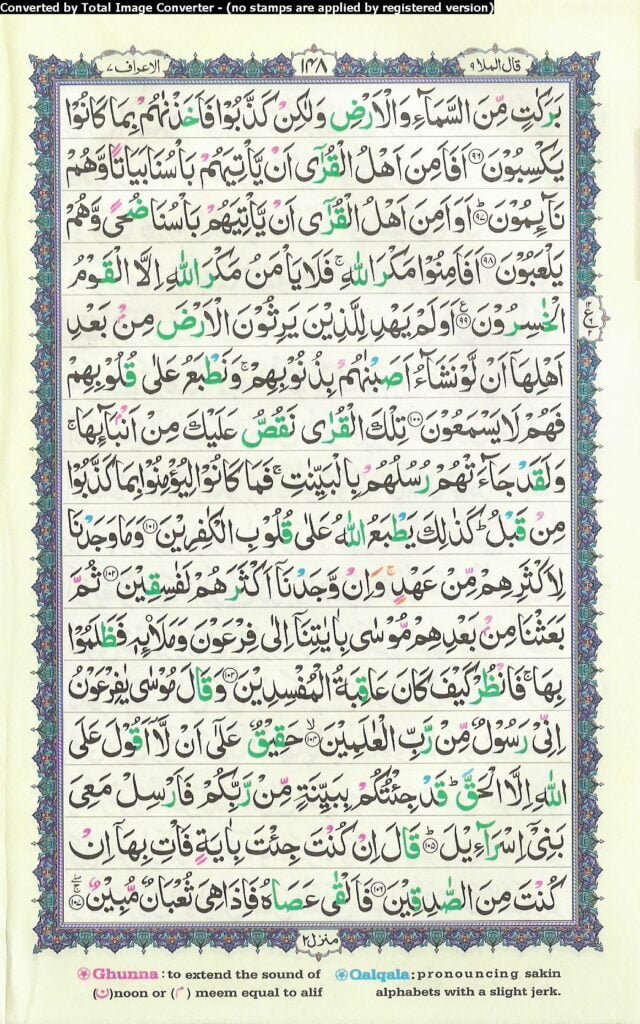 Converted by Total Image Converter - (no stamps are applied by registered version)
قال الملا ٩ ١٤٨ الاعراف ٧
بَرَكٰتٍ مِّنَ السَّمَآءِ وَالْاَرْضِ وَلٰكِنْ كَذَّبُوْا فَاَخَذْنٰهُمْ بِمَا كَانُوْا
يَكْسِبُوْنَ ۝٩٦ اَفَاَمِنَ اَهْلُ الْقُرٰٓى اَنْ يَّاْتِيَهُمْ بَاْسُنَا بَيَاتًا وَّهُمْ
نَآئِمُوْنَ ؕ ۝٩٧ اَوَاَمِنَ اَهْلُ الْقُرٰٓى اَنْ يَّاْتِيَهُمْ بَاْسُنَا ضُحًى وَّهُمْ
يَلْعَبُوْنَ ۝٩٨ اَفَاَمِنُوْا مَكْرَ اللّٰهِ ۚ فَلَا يَاْمَنُ مَكْرَ اللّٰهِ اِلَّا الْقَوْمُ
الْخٰسِرُوْنَ ۝٩٩ اَوَلَمْ يَهْدِ لِلَّذِيْنَ يَرِثُوْنَ الْاَرْضَ مِنْۢ بَعْدِ
اَهْلِهَاۤ اَنْ لَّوْ نَشَآءُ اَصَبْنٰهُمْ بِذُنُوْبِهِمْ ۚ وَنَطْبَعُ عَلٰى قُلُوْبِهِمْ
فَهُمْ لَا يَسْمَعُوْنَ ۝١٠٠ تِلْكَ الْقُرٰى نَقُصُّ عَلَيْكَ مِنْ اَنْۢبَآئِهَا ۚ
وَلَقَدْ جَآءَتْهُمْ رُسُلُهُمْ بِالْبَيِّنٰتِ ۚ فَمَا كَانُوْا لِيُؤْمِنُوْا بِمَا كَذَّبُوْا
مِنْ قَبْلُ ؕ كَذٰلِكَ يَطْبَعُ اللّٰهُ عَلٰى قُلُوْبِ الْكٰفِرِيْنَ ۝١٠١ وَمَا وَجَدْنَا
لِاَكْثَرِهِمْ مِّنْ عَهْدٍ ۚ وَاِنْ وَّجَدْنَاۤ اَكْثَرَهُمْ لَفٰسِقِيْنَ ۝١٠٢ ثُمَّ
بَعَثْنَا مِنْۢ بَعْدِهِمْ مُّوْسٰى بِاٰيٰتِنَاۤ اِلٰى فِرْعَوْنَ وَمَلَا۟ئِهٖ فَظَلَمُوْا
بِهَا ۚ فَانْظُرْ كَيْفَ كَانَ عَاقِبَةُ الْمُفْسِدِيْنَ ۝١٠٣ وَقَالَ مُوْسٰى يٰفِرْعَوْنُ
اِنِّيْ رَسُوْلٌ مِّنْ رَّبِّ الْعٰلَمِيْنَ ۙ ۝١٠٤ حَقِيْقٌ عَلٰٓى اَنْ لَّاۤ اَقُوْلَ عَلَى
اللّٰهِ اِلَّا الْحَقَّ ؕ قَدْ جِئْتُكُمْ بِبَيِّنَةٍ مِّنْ رَّبِّكُمْ فَاَرْسِلْ مَعِيَ
بَنِيْۤ اِسْرَآءِيْلَ ؕ ۝١٠٥ قَالَ اِنْ كُنْتَ جِئْتَ بِاٰيَةٍ فَاْتِ بِهَاۤ اِنْ
كُنْتَ مِنَ الصّٰدِقِيْنَ ۝١٠٦ فَاَلْقٰى عَصَاهُ فَاِذَا هِيَ ثُعْبَانٌ مُّبِيْنٌ ۝١٠٧
منزل ٢
Ghunna : to extend the sound of (ن) noon or (م) meem equal to alif
Qalqala : pronouncing sakin alphabets with a slight jerk.